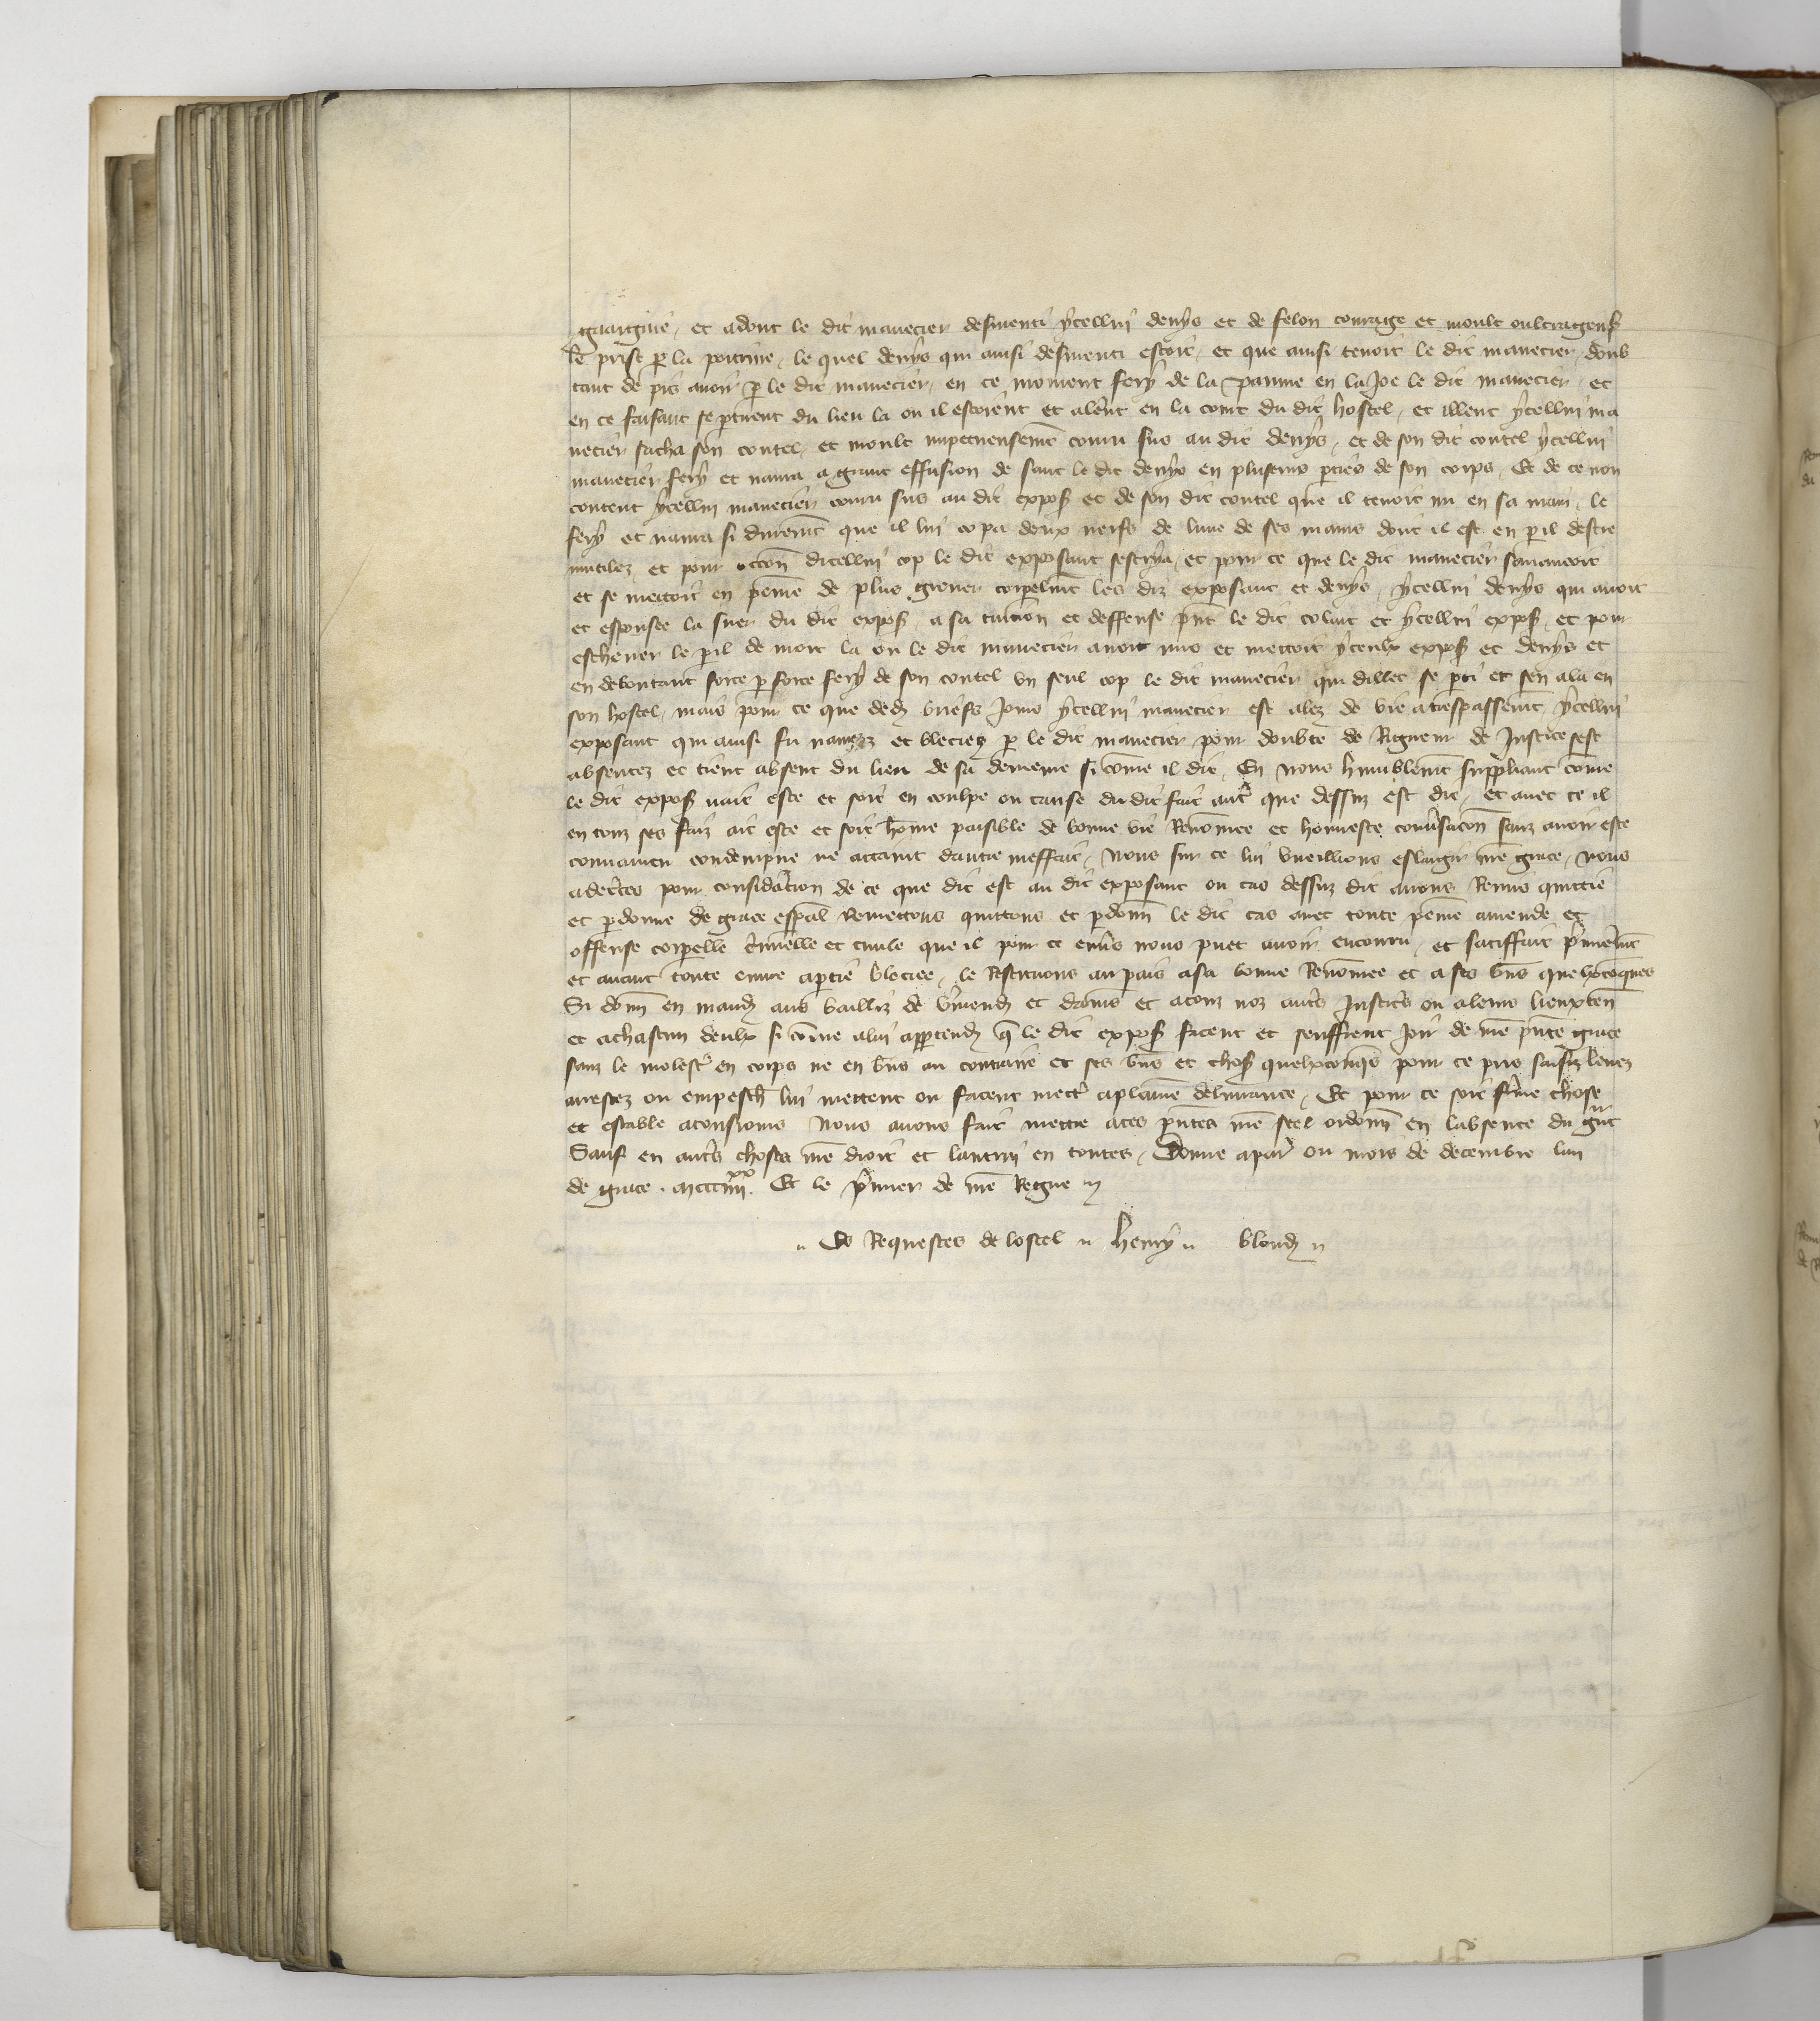 et adont le dit mauecier desmenti ycellui denys et de felon courage et moult oultrageus
le prist p la poitrine, le quel denys qui ainsi desmenti estoit, et que ainsi tenoit le dit mauecier, doub
tant de pis auoir p le dit mauecier, en ce moment fery de la paume en la Joe le dit mauecier, et
en ce faisant se ptirent du lieu la ou il estoient et alerent en la court du dit hostel, et illenc ycellui ma
uecier sacha son coutel, et moult impetueusemt couru sus au dit denys, et de son dit coutel ycellui
mauecier fery et naura a grant effusion de sanc le dit denys en pluseurs pties de son corps, Et de ce non
content ycellui mauecier couru sus au dit expos et de son dit coutel que il tenoit nu en sa main, le
fery et naura si durement que il lui copa deux nerfs de lune de ses mains dont il est en pil destre
mutilez, et pour occon dicellui cop le dit exposant sescrya, et pour ce que le dit mauecier
et se mettoit en peine de plus greuer corpelmt les diz exposant et denys, ycellui denys qui auoit
et espousee la suer du dit expos, a sa tuicion et deffense et ycellui expos, et pour
escheuer le pil de mort la ou le dit mauecier auoit mis et mettoit yceulx expos et denys et
en deboutant force p force fery de son coutel vn seul cop le dit mauecier qui dillec se pti et sen ala en
son hostel, mais pour ce que dedens briefs Jours ycellui mauecier est alez de vie a trespassemt, ycellui
exposant qui ainsi fu naurez et bleciez p le dit mauecier pour doubte de Rigueur de Justice sest
absentez et tient absent du lieu de sa demeure si come il dit, En nous humblemt suppliant come
le dit expos nait este et soit en coulpe ou cause du dit fait autr que dessuz est dit, et auec ce il
en touz ses faiz ait este et soit home paisible de bonne vie Renomee et honneste conusacon sanz auoir este
conuaincu condempne ne attaint dautre meffait, Nous sur ce lui vueillions eslargir nre grace, Nous
adecertes pour consideracion de ce que dit est au dit exposant ou cas dessuz dit auons Remis quittie
et pdonne de grace espal Remettons quittons et pdonn le dit cas auec toute peine amende et
offense corpelle criminelle et ciuile que il pour ce enuers nous puet auoir encouru, et satiffait primeremt
et auant toute euure a ptie bleciee, le Restituons au pais a sa bonne Renomee et a ses biens quelxcoques
Si donn en mandem aus bailliz de vermend et damiens et a touz noz autrs Justicrs ou a leurs lieuxten
et a chascun deulx si come a lui apptendra q le dit expos facent et seuffrent Joir de nre pnte grace
sanz le molestr en corps ne en biens au contraire et ses biens et choses quelxconqs pour ce pris saisiz leuez
arrestez ou empesch lui mettent ou facent mettr a plaine deliurance, Et pour ce soit ferme chose
et estable a tousiours Nous auons fait mettre a ces pntes nre scel ordonn en labsence du grt
Sauf en autrs choses nre droit et lautrui en toutes, Donne a par ou mois de decembre lan
de grace . mccciiiixx. Et le primier de nre Regne
Es Requestes de lostel henry blond